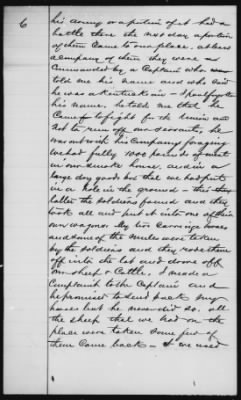 6
his army or a portion of it had a
battle there the next day a portion
of them came to our place. at least
a company of them they were
commanded by a Captain who
told me his name and who said
he was a Kentuckian - I forget
his name. he told me that he
came to fight for the union and
not to run off our servants, he
was out with his Company foraging
we had fully 1500 pounds of meat
in our smoke house, and in a
large dry goods box that we had put
in a hole in the ground - this
latter the soldiers found and they
took all and put it into one of their
own wagons. My two Carriage horses
and some of the mules were taken
by the soldiers and they rode them
off into the lot and drove off
our sheep & Cattle. I made a
Complaint to the Captain and
he promised to send back my
horses but he never did so. all
the sheep that we had on the
place were taken some few of
them came back - I we used